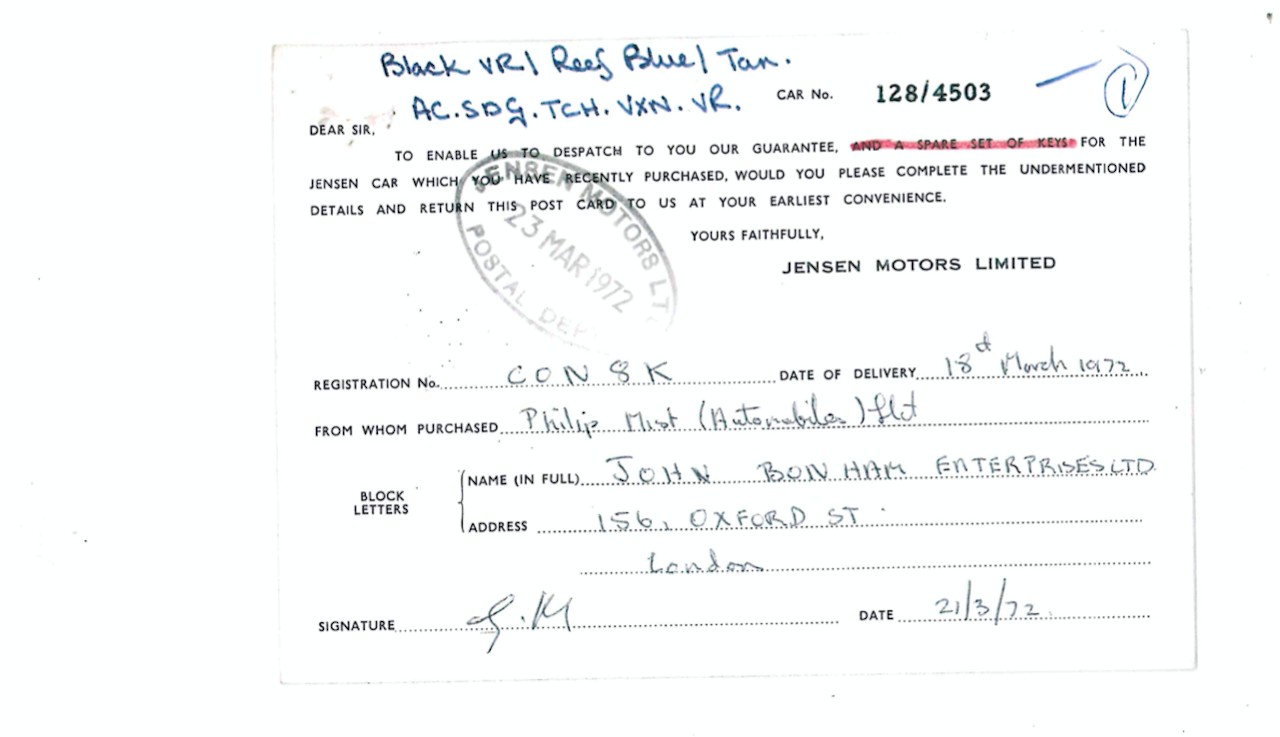 Black VR/ Reef Blue/ Tan.
AC.SDG.TCH.VXN.VR.
CAR No. 128/4503
1
DEAR SIR,
TO ENABLE US TO DESPATCH TO YOU OUR GUARANTEE, AND A SPARE SET OF KEYS FOR THE
JENSEN CAR WHICH YOU HAVE RECENTLY PURCHASED, WOULD YOU PLEASE COMPLETE THE UNDERMENTIONED
DETAILS AND RETURN THIS POST CARD TO US AT YOUR EARLIEST CONVENIENCE.
YOURS FAITHFULLY,
JENSEN MOTORS LIMITED
JENSEN MOTORS LT
23 MAR 1972
POSTAL DEP
REGISTRATION No. CON 8K DATE OF DELIVERY 18 March 1972
FROM WHOM PURCHASED Philip Mist (Automobiles) Ltd
BLOCK LETTERS
NAME (IN FULL) JOHN BONHAM ENTERPRISES LTD
ADDRESS 156, OXFORD ST
London
SIGNATURE DATE 21/3/72